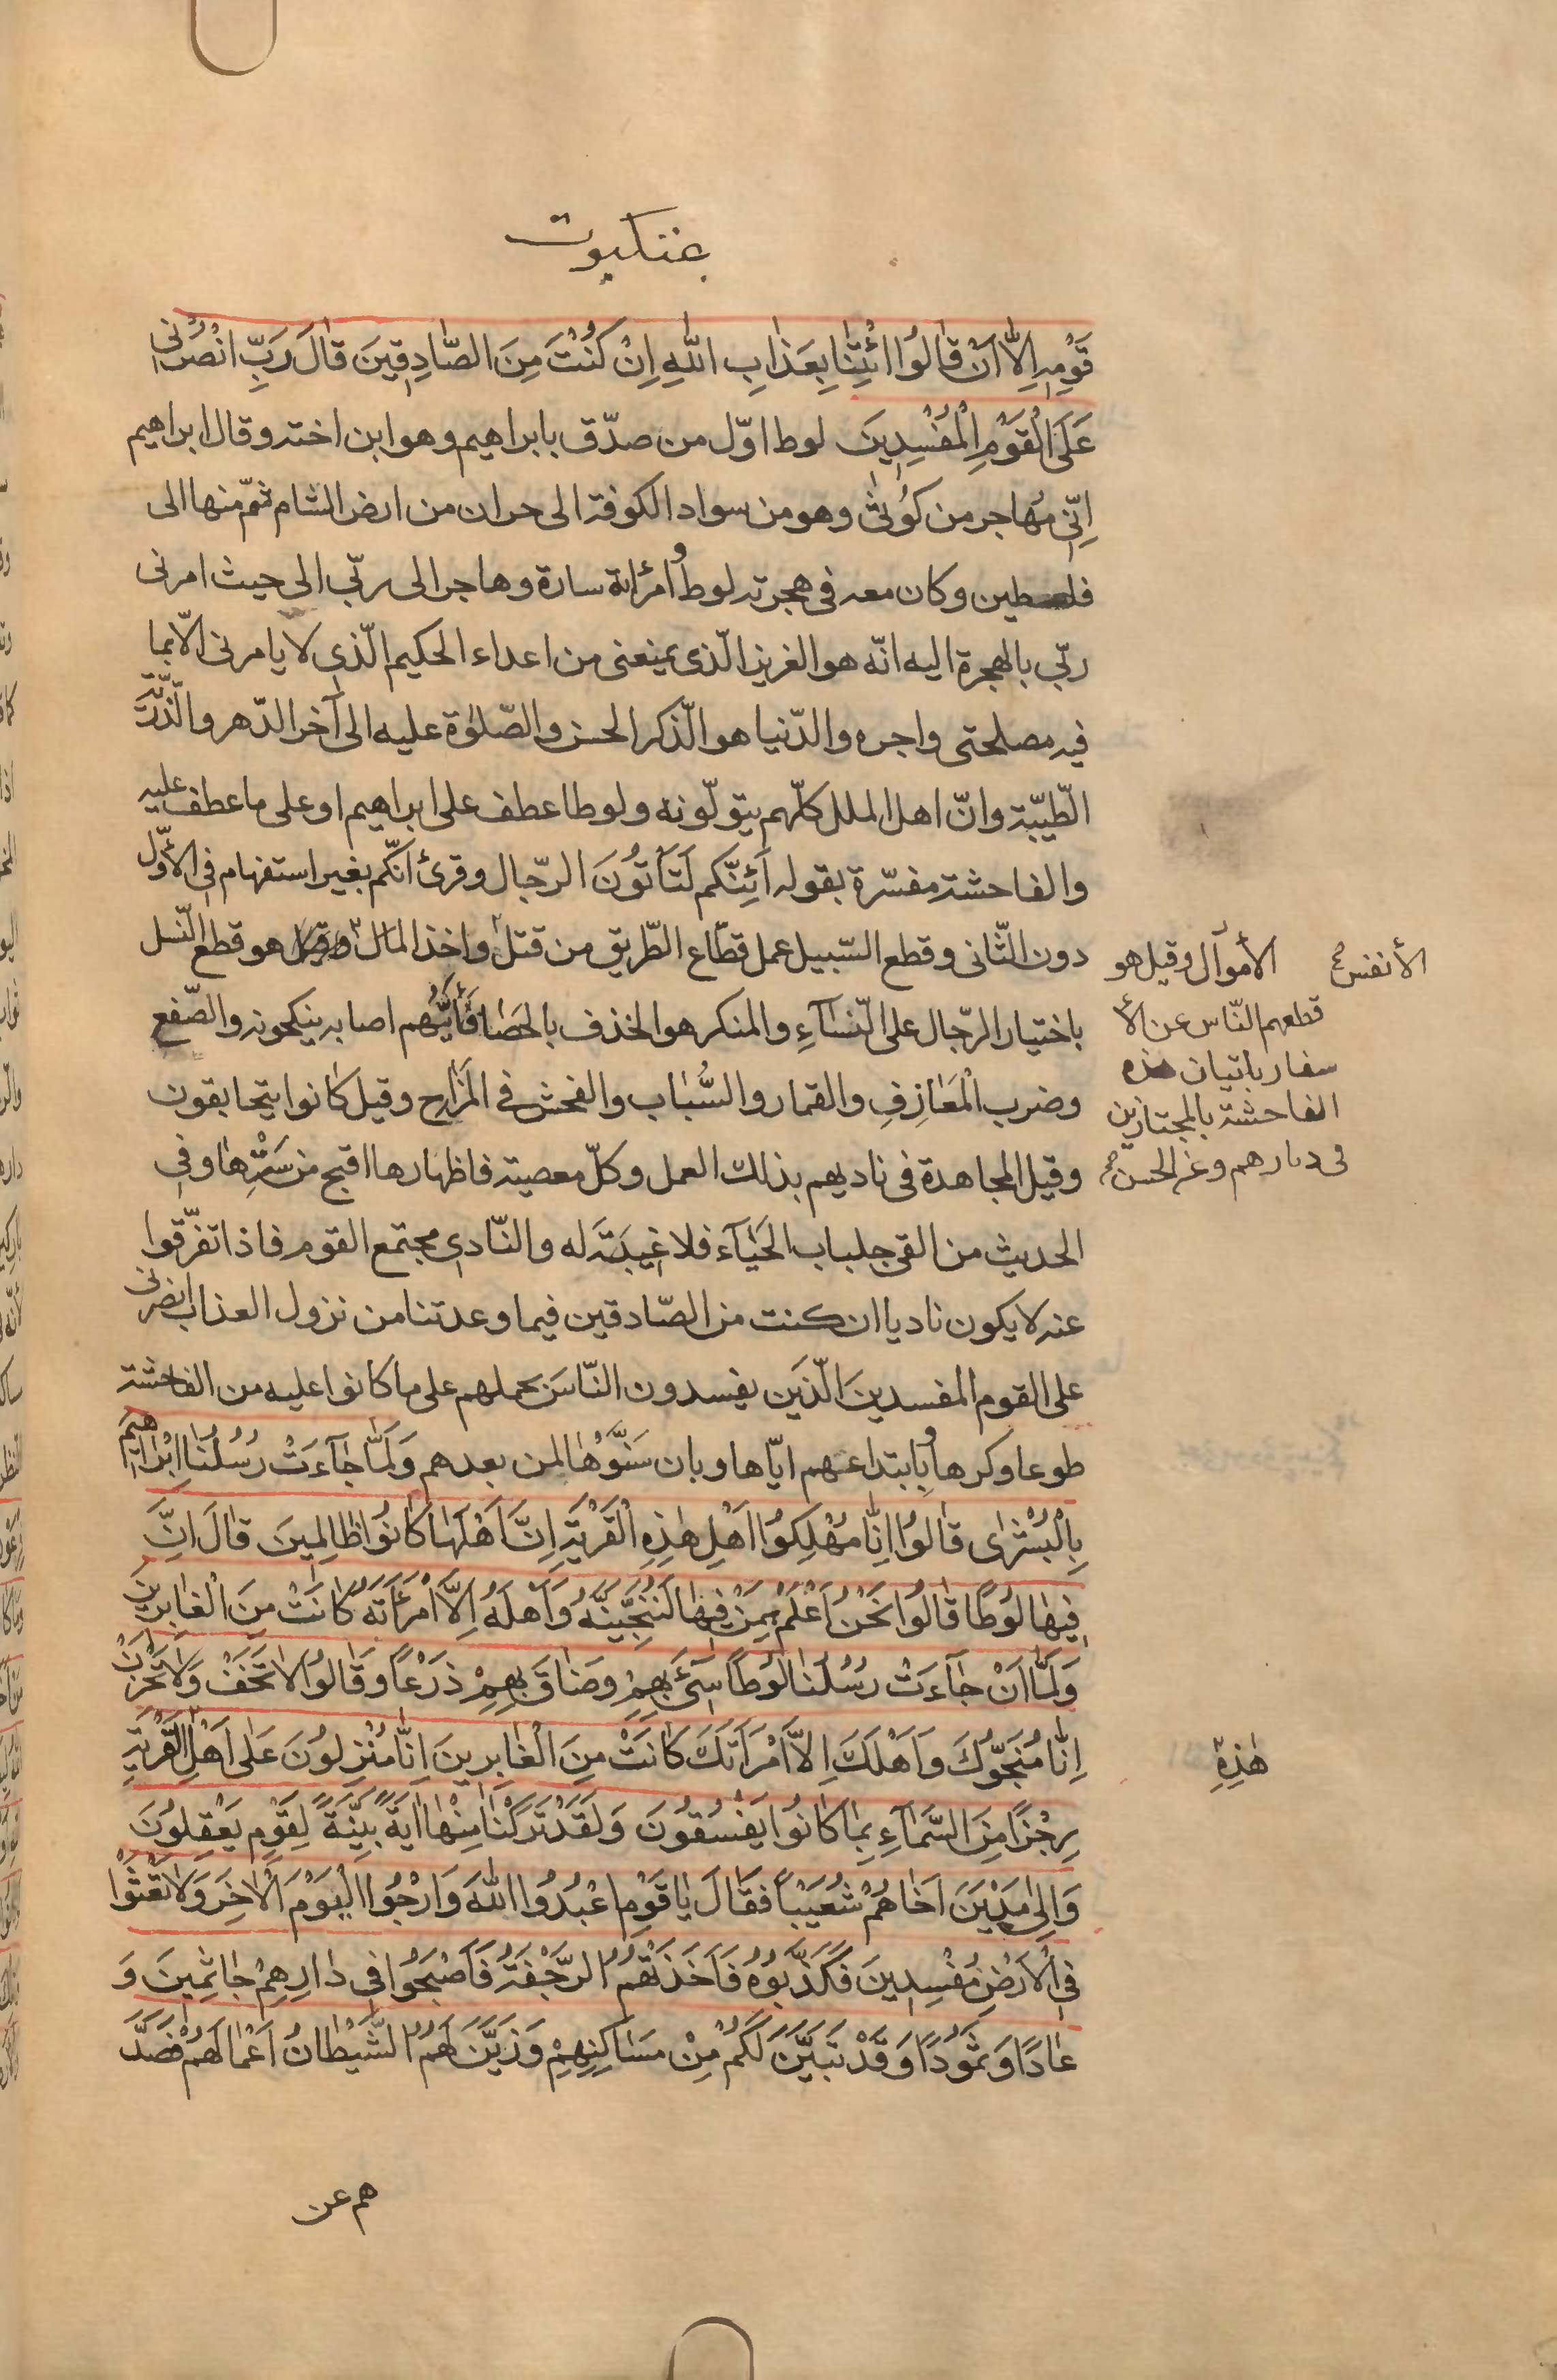 عنكبوت
قَوْمِهِ اِلّاٰ اَنْ قٰالُوا ائْتِنٰا بِعَذٰابِ اللّٰهِ اِنْ كُنْتَ مِنَ الصّٰادِقِينَ قٰالَ رَبِّ انْصُرْنى
عَلَى الْقَوْمِ الْمُفْسِدِينَ لوط اوّل من صدّق بابراهيم وهو ابن اخته وقال ابراهيم
اِنّى مُهاجر من كُوثىٰ وهو من سواد الكوفة الى حران من ارض الشام ثمّ منها الى
فلسطين وكان معه فى هجرته لوط وُامرُاته سارة وهاجر الى ربّى الى حيث امرنى
ربّى بالهجرة اليه انّه هو العزيز الّذى يمنعنى من اعداء الحكيم الّذى لا يامرنى الّا بما
فيه مصلحتى واجره والدّنيا هو الّذكر الحسن والصّلوٰة عليه الى آخر الدّهر والّذّريّة
الّطيّبة وانّ اهل الملل كلّهم يتولّونه ولوطا عطف على ابراهيم او على ما عطف عليه
والفاحشة مفسّرة بقوله اَئِنّكم لَتَأتُونَ الرّجال وقرئ انّكم بغير استفهام فى الأوّل
دون الثّانى وقطع السّبيل عمل قطّاع الطّريق من قتل واخذ المال وقيل هو قطع النّسل
الأموال وقيل هو
الأنفس
قطعهم النّاس عن الأ
سفار باتيان هذه
الفاحشة بالمجتازين
فى ديارهم وعن الحسن
باختيار الرّجال على النّسآءِ والمنكر هو الخذف بالحَصٰا فَأيُّهم اصابه ينكحونه والصّفع
وضرب الْمَعٰازِفِ والقمار والسُّبٰاب والفحش فى المَزٰاح وقيل كانوا يتحابقون
وقيل المجاهدة فى ناديهم بذلك العمل وكلّ معصية فاظهارها اقبح من سَتْرِهٰا وفى
الحديث من القى جلباب الحَيٰآء فلا غيبَةَ له والنّادى مجتمع القوم فاذا تفرّقوا
عنه لا يكون ناديا ان كنت من الصّادقين فيما وعدتنا من نزول العذاب انصرنى
على القوم المفسدينَ الّذينَ يفسدون النّاسَ بحملهم على ما كانوا عليه من الفاحشة
طوعا وكرها وُبابتداعهم ايّاها وبان سَنُّوْهٰا لمن بعدهم وَلَمّٰا جٰآءَتْ رُسُلُنٰا اِبْرٰاهِيمَ
بِالْبُشْرٰى قٰالُوا اِنّٰا مُهْلِكُوا اَهْلِ هٰذِهِ الْقَرْيَةِ اِنَّ اَهْلَهٰا كٰانُوا ظٰالِمِينَ قٰالَ اِنَّ
فِيهٰا لُوطًا قٰالُوا نَحْنُ اَعْلَمُ بِمَنْ فِيهٰا لَنُنَجِّيَنَّهُ وَاَهْلَهُ اِلَّا امْرَأَتَهُ كٰانَتْ مِنَ الْغٰابِرِينَ
وَلَمّٰا اَنْ جٰآءَتْ رُسُلُنٰا لُوطًا سِىٓءَ بِهِمْ وَضٰاقَ بِهِمْ ذَرْعًا وَقٰالُوا لٰا تَخَفْ وَلٰا تَحْزَنْ
اِنّٰا مُنَجُّوكَ وَاَهْلَكَ اِلَّا امْرَأَتَكَ كٰانَتْ مِنَ الْغٰابِرِينَ اِنّٰا مُنْزِلُونَ عَلٰى اَهْلِ الْقَرْيَةِ
هٰذِهِ
رِجْزًا مِنَ السَّمٰآءِ بِمٰا كٰانُوا يَفْسُقُونَ وَلَقَدْ تَرَكْنٰا مِنْهٰا اٰيَةً بَيِّنَةً لِقَوْمٍ يَعْقِلُونَ
وَاِلٰى مَدْيَنَ اَخٰاهُمْ شُعَيْبًا فَقٰالَ يٰا قَوْمِ اعْبُدُوا اللّٰهَ وَارْجُوا الْيَوْمَ الْاٰخِرَ وَلٰا تَعْثَوْا
فِى الْاَرْضِ مُفْسِدِينَ فَكَذَّبُوهُ فَاَخَذَتْهُمُ الرَّجْفَةُ فَاَصْبَحُوا فِى دٰارِهِمْ جٰاثِمِينَ وَ
عٰادًا وَثَمُودًا وَقَدْ تَبَيَّنَ لَكُمْ مِنْ مَسٰاكِنِهِمْ وَزَيَّنَ لَهُمُ الشَّيْطٰانُ اَعْمٰالَهُمْ فَصَدَّ
هم عن